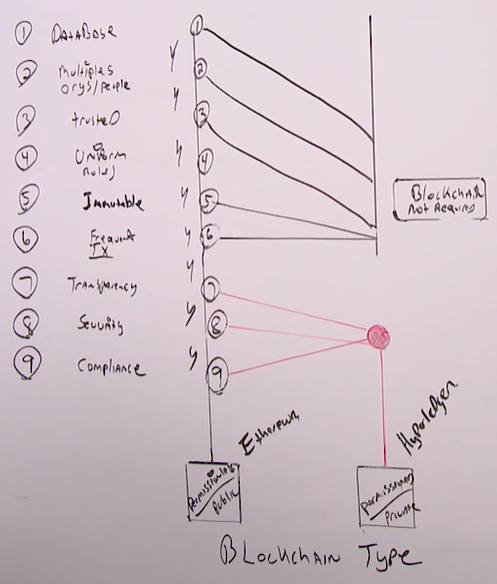 1 DataBase
2 multiples
orgs/people
3 trusted
4 Uniform
rules
5 Immutable
6 Frequent
TX
7 Transparency
8 Security
9 Compliance
1
Y
2
Y
3
Y
4
Y
5
Y
6
Y
7
Y
8
Y
9
Blockchain
Not Required
Ethereum
Hyperledger
Public
Permissioned
Private
Blockchain Type